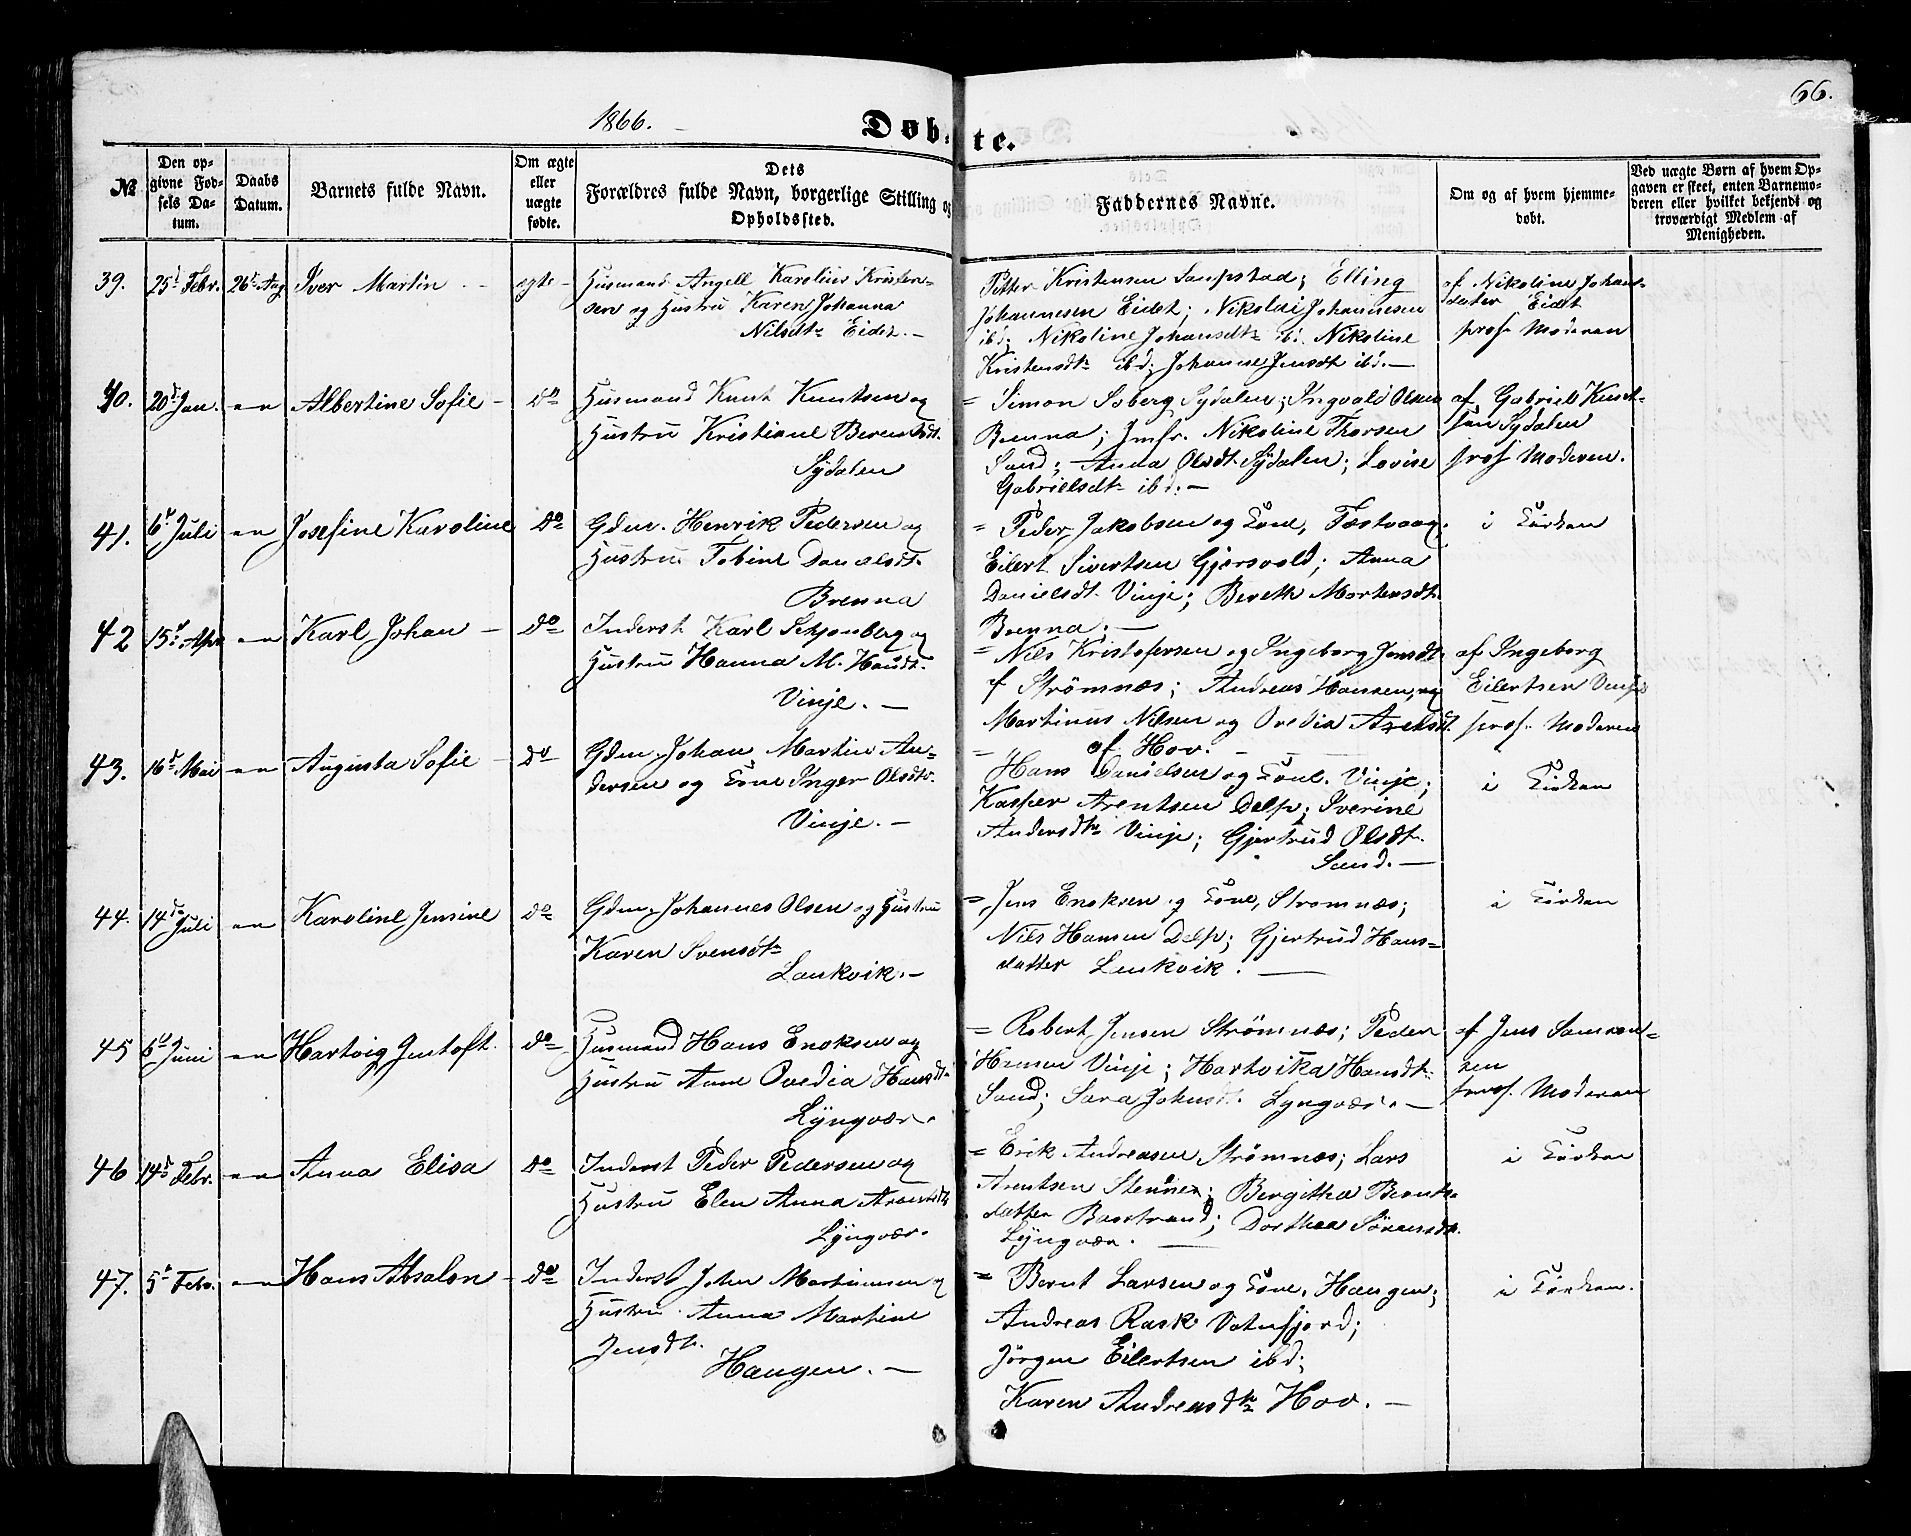 66.
1866.
Døbte.
№
Den opgivne Fødsels Datum.
Daabs Datum.
Barnets fulde Navn.
Om ægte eller uægte fødte.
Dets Forældres fulde Navn, borgerlige Stilling og Opholdssted.
Faddernes Navne.
Om og af hvem hjemmedøbt.
Ved uægte Børn af hvem Opgaven er skeet, enten Barnemoderen eller hvilket bekjendt og troværdigt Medlem af Menigheden.
39. 25d Febr. 26d Aug Iver Martin - egte -
Husmand Angell Karolius Kristen-
sen og Hustru Karen Johanna
Nilsdtr Eidet. -
Petter Kristensen Saupstad; Elling
Johannesen Eidet; Nikolai Johannesen
ibd; Nikoline Johansdtr ibd. Nikoline
Kristensdtr ibd; Johanna Jensdt ibd. -
af Nikoline Johans-
datter Eidet
præs. Moderen
40. 20d Jan. " Albertine Sofie - do
Husmand Knut Knutsen og
Hustru Kristiane Berentsdt.
Sydalen
= Simon Soberg Sydalen; Ingvald Olsen
Brenna; Jmfr. Nikoline Thorsen
Sand; Anna Olsdt Sydalen; Lovise
Gabrielsdtr ibd. -
af Gabriel Knut-
sen Sydalen
præs Moderen.
41. 6d Juli " Josefine Karoline do
Gdm. Henrik Pedersen og
Hustru Tobine Danielsdt.
Brenna
= Peder Jakobsen og Kone, Festvaag;
Eilert Sivertsen Gjersvold; Anna
Danielsdt. Vinje; Bereth Mortensdt.
Brenna; -
i Kirken
42 15d Apr " Karl Johan - do
Inderst Karl Schjønberg og
Hustru Hanna M. Hansdt.
Vinje. -
= Nils Kristofersen og Ingeborg Jensdt.
af Strømnæs; Andreas Hansen, og
Martinus Nilsen og Ovedia
af Hov. -
af Ingeborg
Eilertsen Vinje
præs. Moderen
43. 16d Mai " Augusta Sofie - do
Gdm. Johan Martin An-
dersen og Kone Inger Olsdtr.
Vinje. -
= Hans Danielsen og Kone. Vinje;
Kasper Arentsen Delp; Iverine
Andersdtr Vinje; Gjertrud Olsdt.
Sand. -
i Kirken
44. 14d Juli " Karoline Jensine do
Gdm. Johannes Olsen og Hustru
Karen Svensdtr
Laukvik. -
= Jens Enoksen og Kone, Strømnæs;
Nils Hansen Delp; Gjertrud Hans-
datter Laukvik. -
i Kirken
45 6d Juni " Hartvig Jentoft. do
Husmand Hans Enoksen og
Hustru Anne Ovedia Hansdt.
Lyngvær.
= Robert Jensen Strømnæs; Peder
Hansen Vinje; Hartvika Hansdt.
Sand; Sara Johnsdt. Lyngvær. -
af Jens Samson-
sen
præs. Moderen
46 14d Febr. " Anna Elisa do
Inderst Peder Pedersen og
Hustru Elen Anna Arentsdt
Lyngvær.
= Erik Andreasen Strømnæs; Lars
Arentsen Stennes; Bergitha Bernts-
datter Baastrand; Dorthea Sørensdt.
Lyngvær. -
i Kirken
47. 5d Febr. " Hans Absalon - do
Inderst John Martinusen og
Hustru Anna Martine
Jensdt.
Haugen. -
= Bernt Larsen og Kone, Haugen;
Andreas Rask Vatnfjord;
Jørgen Eilertsen ibd;
Karen Andreasdtr Hov. -
i Kirken.